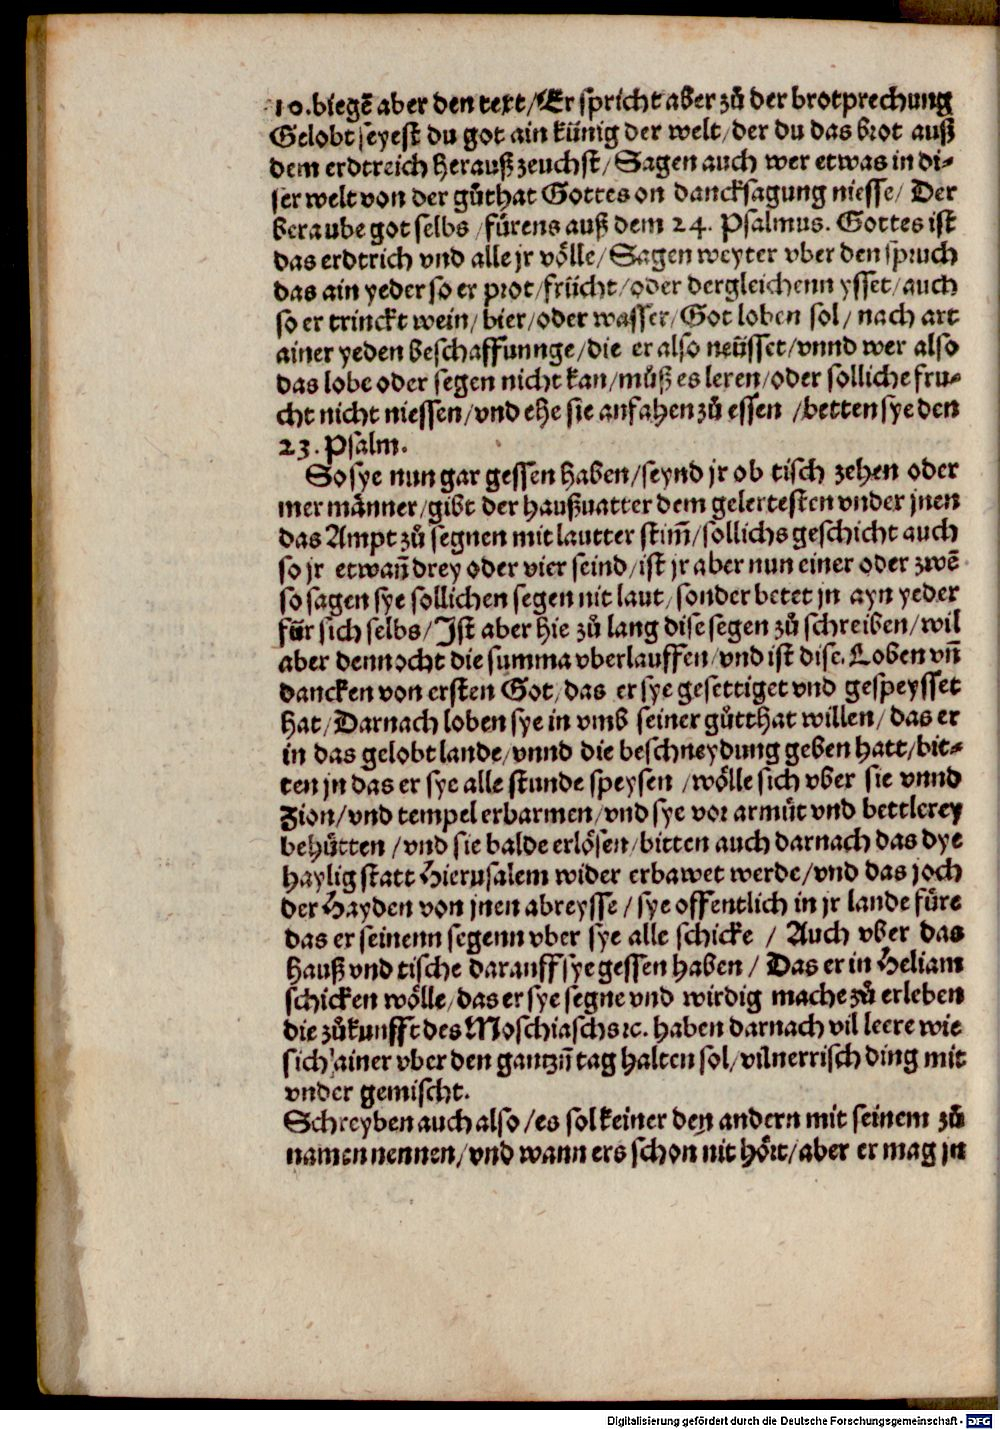 10.biegē aber den text/Er spricht aber zů der brotprechung
Gelobt seyest du got ain künig der welt/der du das brot auß
dem erdtreich herauß zeuchst/Sagen auch wer etwas in di-
ser welt von der gůthat Gottes on dancksagung niesse/ Der
beraube got selbs /fürens auß dem 24. Psalmus. Gottes ist
das erdtrich vnd alle jr völle/Sagen weyter vber den spruch
das ain yeder so er prot/frücht/oder dergleichenn ysset/auch
so er trinckt wein/bier/oder wasser/Got loben sol/ nach art
ainer yeden beschaffunnge/die er also neüsset/vnnd wer also
das lobe oder segen nicht kan/můß es leren/oder solliche fru-
cht nicht niessen/vnd ehe sie anfahen zů essen /betten sye den
23. Psalm.
So sye nun gar gessen haben/seynd jr ob tisch zehen oder
mer männer/gibt der haußuatter dem gelertesten vnder jnen
das Ampt zů segnen mit lautter stim̄/sollichs geschicht auch
so jr etwan̄ drey oder vier seind/ist jr aber nun einer oder zwē
so sagen sye sollichen segen nit laut/sonder betet jn ayn yeder
für sich selbs/Ist aber hie zů lang dise segen zů schreiben/wil
aber dennocht die summa vberlauffen/vnd ist dise. Loben vn̄
dancken von ersten Got/das er sye gesettiget vnd gespeysset
hat/Darnach loben sye in vmb seiner gůtthat willen/das er
in das gelobt lande/vnnd die beschneydung geben hatt/bit-
ten jn das er sye alle stunde speysen /wölle sich vber sie vnnd
Zion/vnd tempel erbarmen/vnd sye vor armůt vnd bettlerey
behütten /vnd sie balde erlösen/bitten auch darnach das dye
haylig statt Hierusalem wider erbawet werde/vnd das joch
der Hayden von jnen abreysse/sye offentlich in jr lande füre
das er seinenn segenn vber sye alle schicke / Auch vber das
hauß vnd tische darauff sye gessen haben/ Das er in Heliam
schicken wölle/das er sye segne vnd wirdig mache zů erleben
die zůkunfft des Moschiaschs ꝛc. haben darnach vil leere wie
sich ainer vber den gantzn̄ tag halten sol/vil nerrisch ding mit
vnder gemischt.
Schreyben auch also/es sol keiner den andern mit seinem zů
namen nennen/vnd wann ers schon nit hört/aber er mag jn
Digitalisierung gefördert durch die Deutsche Forschungsgemeinschaft - DFG